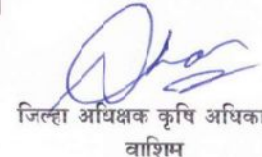 जिल्हा अधिक्षक कृषि अधिका
वाशिम